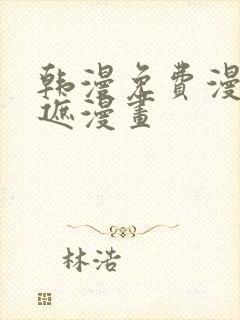 韩漫免费漫
遮漫畫
林浩